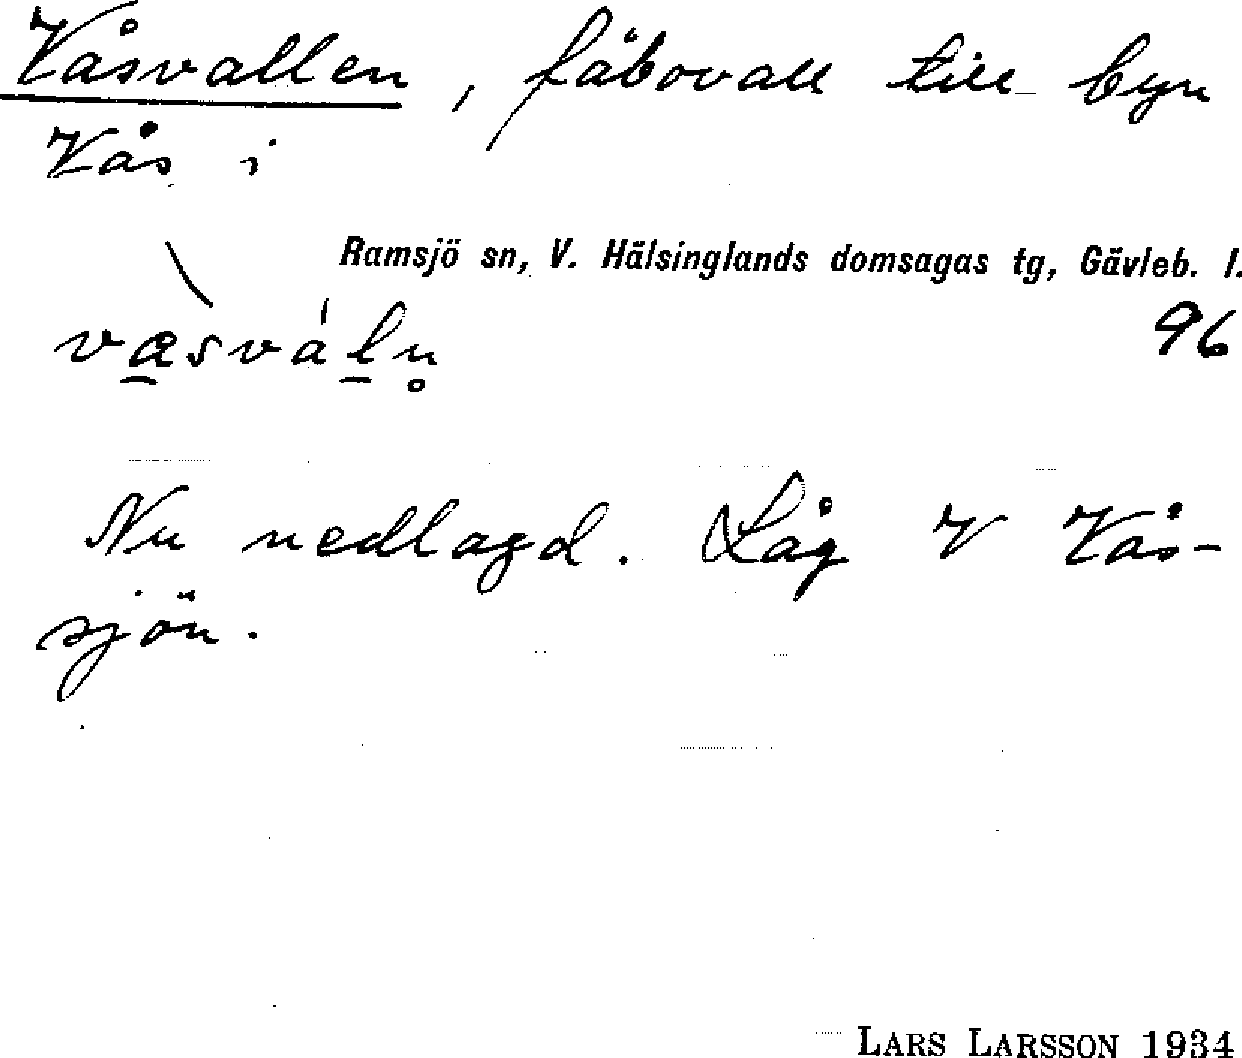 Våsvallen, fäbovall till byn
Vås i
Ramsjö sn, V. Hälsinglands domsagas tg, Gävleb. l.
96
Nu nedlagd. Låg V Vås-
sjön.
LARS LARSSON 1934